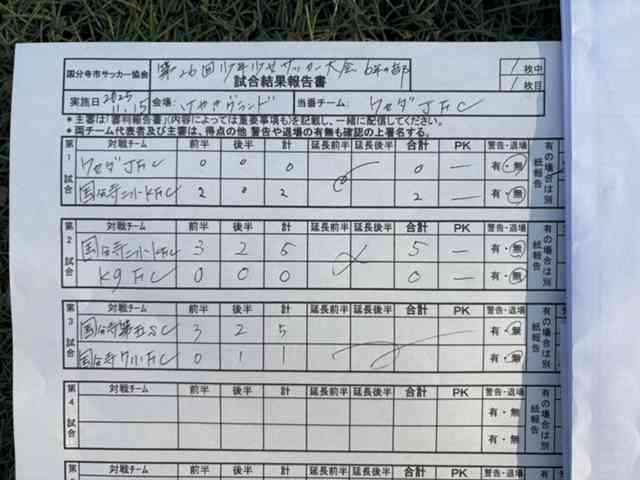 国分寺市サッカー協会 第26回少年少女サッカー大会 6年の部 1枚中
試合結果報告書 1枚目
実施日 2025 11.15 会場: けやきグランド 当番チーム: ワセダJFC
*主審は「審判報告書」(内容によっては重要事項も)を記載し、一緒に配信してください。
*両チーム代表者及び主審は、得点の他 警告や退場の有無も確認の上署名する。
第1試合 対戦チーム 前半 後半 計 延長前半 延長後半 合計 PK 警告・退場 有の場合は別紙報告
ワセダJFC 0 0 0 0 — 有・無
国分寺 KFC 2 0 2 2 — 有・無
第2試合 対戦チーム 前半 後半 計 延長前半 延長後半 合計 PK 警告・退場 有の場合は別紙報告
国分寺 KFC 3 2 5 5 — 有・無
K9 FC 0 0 0 0 — 有・無
第3試合 対戦チーム 前半 後半 計 延長前半 延長後半 合計 PK 警告・退場 有の場合は別紙報告
国分寺第五SC 3 2 5 有・無
国分寺 FC 0 1 1 有・無
第4試合 対戦チーム 前半 後半 計 延長前半 延長後半 合計 PK 警告・退場 有の場合は別紙報告
有・無
有・無
対戦チーム 前半 後半 計 延長前半 延長後半 合計 PK 警告・退場